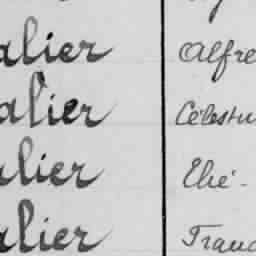 alier Alfre
alier Célestin
alier Elie -
alier Franc